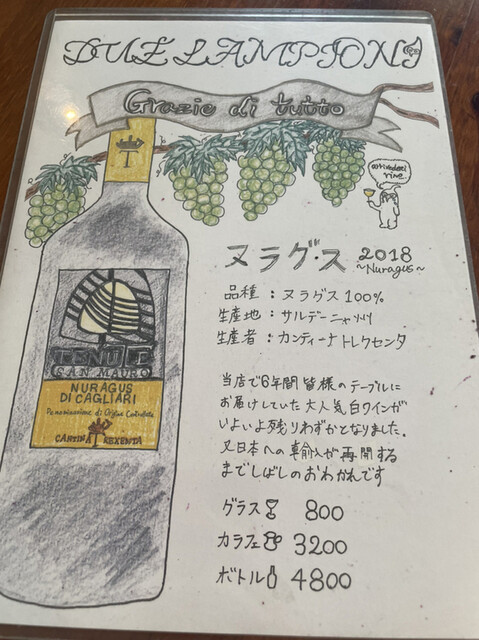 DUE LAMPIONI
Grazie di tutto
ヌラグ・ス 2018
~Nuragus~
品種 : ヌラグス 100%
生産地 : サルデーニャ州
生産者 : カンティーナ トレクセンタ
当店で6年間 皆様のテーブルに
お届けしていた 大人気 白ワインが
いよいよ残りわずかとなりました.
又日本への輸入が再開する
までしばしのおわかれです
グラス 800
カラフェ 3200
ボトル 4800
TENUTE
SAN MAURO
NURAGUS
DI CAGLIARI
Denominazione di Origine Controllata
CANTINA TREXENTA